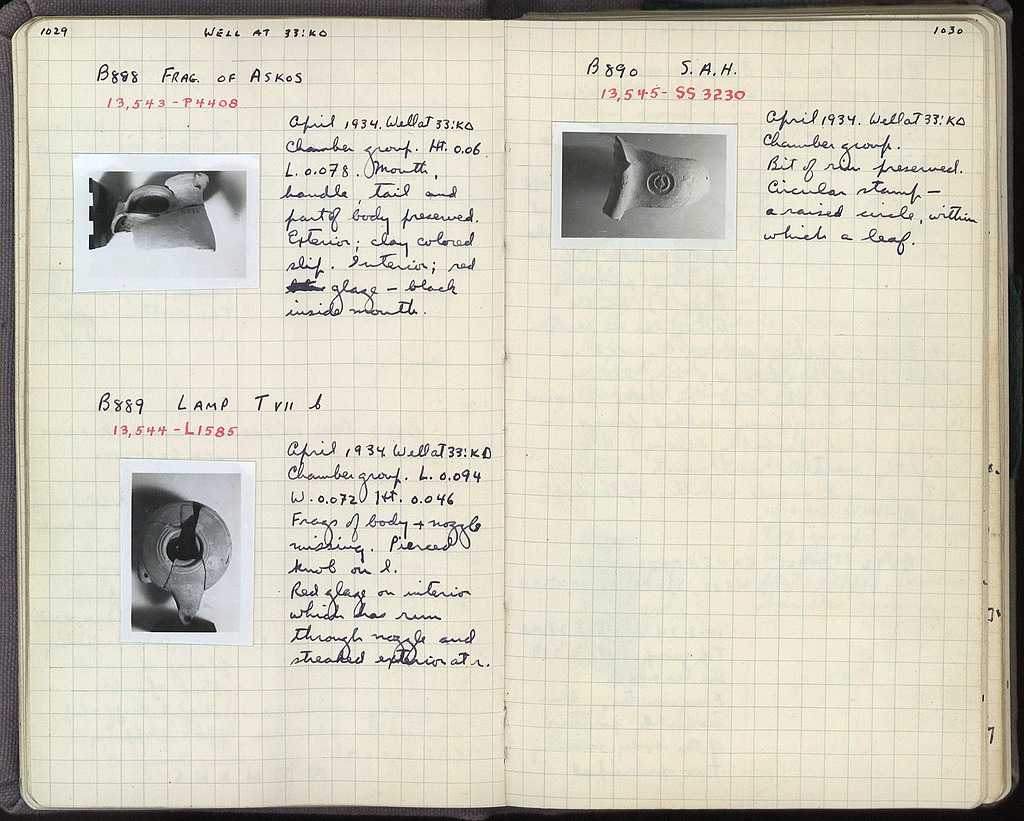 1029
WELL AT 33:KΔ
B888 FRAG. OF ASKOS
13,543 - P4408
April 1934. Well at 33:KΔ
Chamber group. Ht. 0.06
L. 0.078. Mouth,
handle, tail and
part of body preserved.
Exterior; clay colored
slip. Interior; red
glaze - black
inside mouth.
B889 LAMP T VII b
13,544 - L1585
April 1934 Well at 33:KΔ
Chamber group. L. 0.094
W. 0.072 Ht. 0.046
Frags of body + nozzle
missing. Pierced
knob on l.
Red glaze on interior
which has run
through nozzle and
streaked exterior at r.
1030
B890 S.A.H.
13,545 - SS 3230
April 1934. Well at 33:KΔ
Chamber group.
Bit of rim preserved.
Circular stamp -
a raised circle, within
which a leaf.